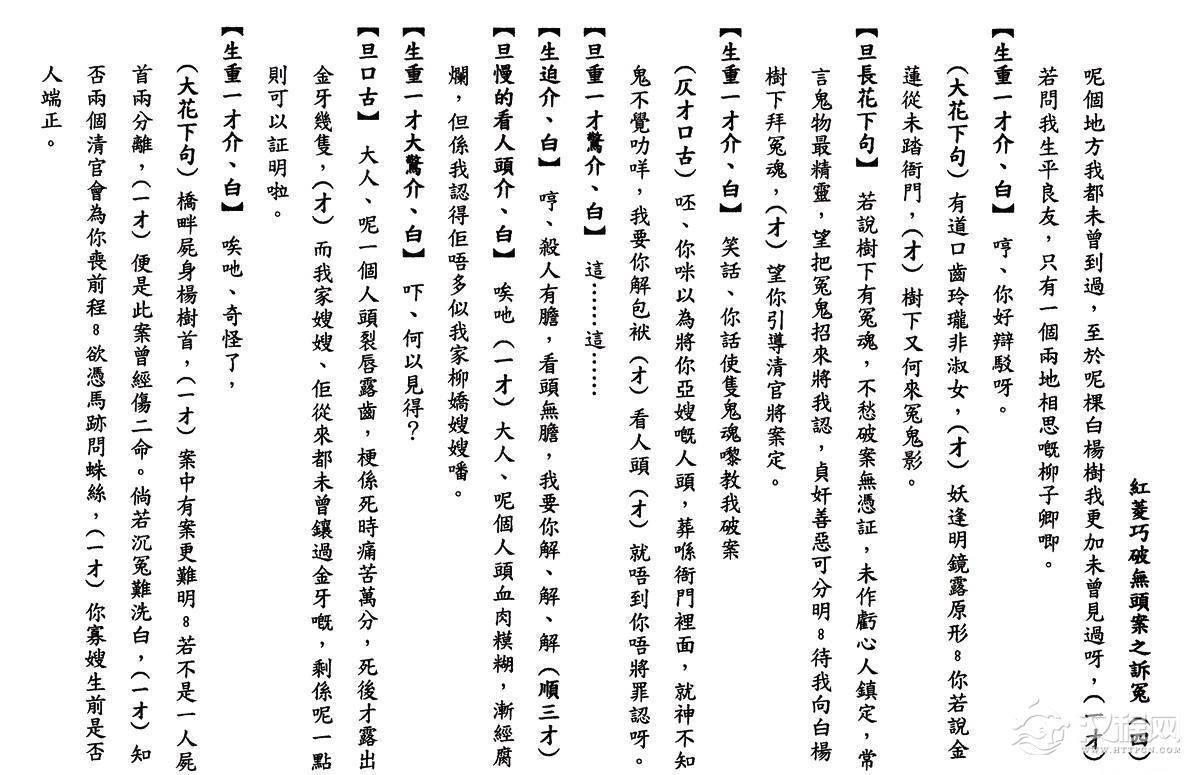 紅菱巧破無頭案之訴冤(四)
呢個地方我都未曾到過,至於呢棵白楊樹我更加未曾見過呀,(一才)
若問我生平良友,只有一個兩地相思嘅柳子卿唧。
【生重一才介、白】 哼、你好辯駁呀。
(大花下句)有道口齒玲瓏非淑女,(才)妖逢明鏡露原形:你若說金
蓮從未踏衙門,(才)樹下又何來冤鬼影。
【旦長花下句】 若說樹下有冤魂,不愁破案無憑証,未作虧心人鎮定,常
言鬼物最精靈,望把冤鬼招來將我認,貞奸善惡可分明:待我向白楊
樹下拜冤魂,(才)望你引導清官將案定。
【生重一才介、白】 笑話、你話使隻鬼魂嚟教我破案
(仄才口古)呸、你咪以為將你亞嫂嘅人頭,葬喺衙門裡面,就神不知
鬼不覺叻咩,我要你解包袱(才)看人頭(才)就唔到你唔將罪認呀。
【旦重一才驚介、白】 這⋯⋯⋯這⋯⋯⋯
【生迫介、白】 哼、殺人有膽,看頭無膽,我要你解、解、解(順三才)
【旦慢的看人頭介、白】 唉吔(一才)大人、呢個人頭血肉糢糊,漸經腐
爛,但係我認得佢唔多似我家柳嬌嫂嫂噃。
【生重一才大驚介、白】 吓、何以見得?
【旦口古】 大人、呢一個人頭裂唇露齒,梗係死時痛苦萬分,死後才露出
金牙幾隻,(才)而我家嫂嫂、佢從來都未曾鑲過金牙嘅,剩係呢一點
則可以証明啦。
【生重一才介、白】 唉吔、奇怪了,
(大花下句)橋畔屍身楊樹首,(一才)案中有案更難明:若不是一人屍
首兩分離,(一才)便是此案曾經傷二命。倘若沉冤難洗白,(一才)知
否兩個清官會為你喪前程:欲憑馬跡問蛛絲,(一才)你寡嫂生前是否
人端正。
汉程网
WWW.HTTPCN.COM